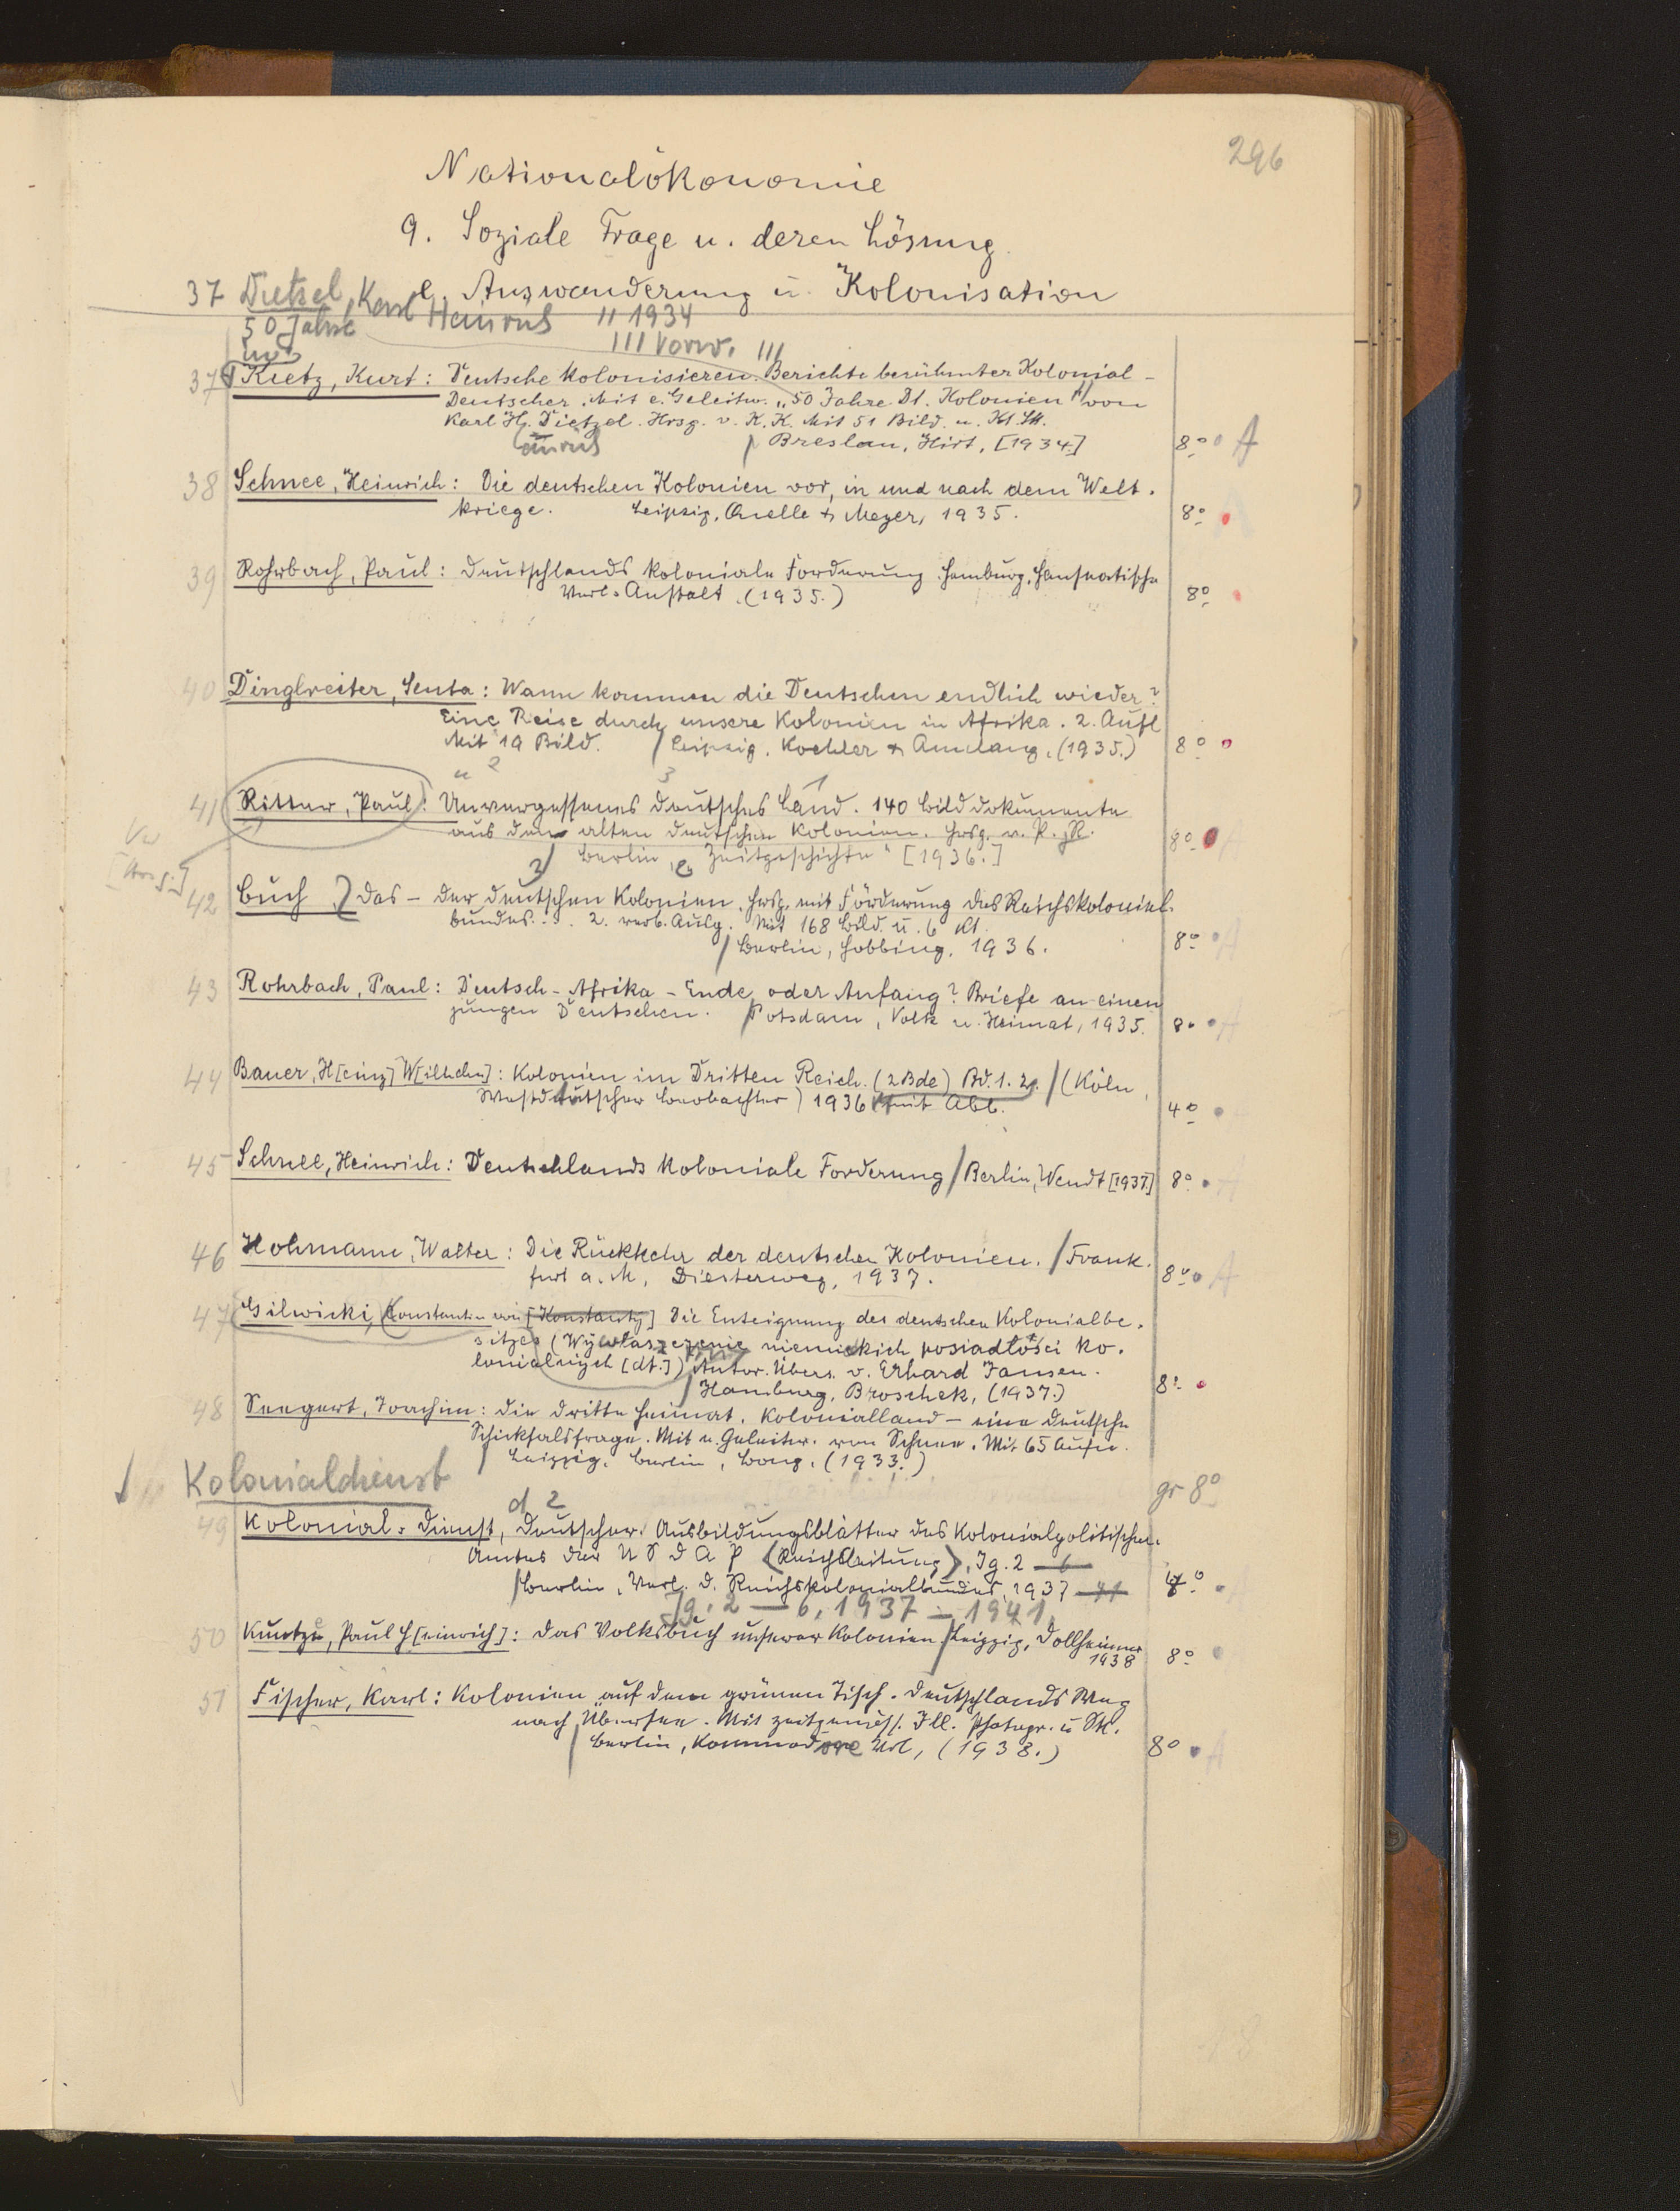 296
Nationalökonomie
9. Soziale Frage u. deren Lösung.
e. Auswanderung u. Kolonisation
37 Dietzel, Karl Heinrich " 1934
50 Jahre
III Vorw. III
37a Kietz, Kurt: Deutsche kolonisieren. Berichte berühmter Kolonial-
Deutscher. Mit e. Geleitw. „50 Jahre Dt. Kolonien" von
Karl H. Dietzel. Hrsg. v. K. K. Mit 51 Bild. u. Kt. Sk.
einrich / Breslau, Hirt, [1934.] 8° A
38 Schnee, Heinrich: Die deutschen Kolonien vor, in und nach dem Welt-
kriege. Leipzig, Quelle & Meyer, 1935. 8°
39 Rohrbach, Paul: Deutschlands koloniale Forderung. Hamburg, Hanseatische
Verl.-Anstalt. (1935.) 8°
40 Dinglreiter, Senta: Wann kommen die Deutschen endlich wieder?
Eine Reise durch unsere Kolonien in Afrika. 2. Aufl
Mit 19 Bild. / Leipzig, Koehler & Amelang, (1935.) 8°
u 2 3 1
41 Ritter, Paul: Unvergessenes deutsches Land. 140 Bilddokumente
aus den alten deutschen Kolonien. Hrsg. v. P. R.
Berlin, „Zeitgeschichte" [1936.] 8°
[Hrsg.]
42 Buch, Das – der deutschen Kolonien. Hrsg. mit Förderung des Reichskolonial-
bundes... 2. verb. Ausg. Mit 168 Bild. u. 6 Kt.
/ Berlin, Hobbing, 1936. 8° A
43 Rohrbach, Paul: Deutsch-Afrika – Ende oder Anfang? Briefe an einen
jungen Deutschen. / Potsdam, Volk u. Heimat, 1935. 8° A
44 Bauer, H[einz] W[ilhelm]: Kolonien im Dritten Reich. (2 Bde) Bd. 1. 2. / (Köln,
Westdeutscher Beobachter) 1936 mit Abb. 4°
45 Schnee, Heinrich: Deutschlands koloniale Forderung / Berlin, Wendt [1937.] 8° A
46 Hohmann, Walter: Die Rückkehr der deutschen Kolonien. / Frank-
furt a. M, Diesterweg, 1937. 8° A
47 Gilwicki, Konstantin von [Konstanty] Die Enteignung des deutschen Kolonialbe-
sitzes (Wywłaszczenie niemieckich posiadłości ko-
lonialnych [dt.]) Autor. Übers. v. Erhard Jansen.
/ Hamburg, Broschek, (1937.) 8°
48 Seegert, Joachim: Die dritte Heimat. Kolonialland – eine deutsche
Schicksalsfrage. Mit e. Geleitw. von Schnee. Mit 65 Aufn.
/ Leipzig, Berlin, Bong, (1933.)
Kolonialdienst gr 8°
d 2
49 Kolonial-Dienst, Deutscher. Ausbildungsblätter des Kolonialpolitischen
Amtes der NSDAP (Reichsleitung), Jg. 2 – 6
/ Berlin, Verl. d. Reichskolonialbundes, 1937 – 41 8°
Jg. 2 – 6, 1937 – 1941.
50 Kuntze, Paul H[einrich]: Das Volksbuch unserer Kolonien / Leipzig, Dollheimer
1938 8°
51 Fischer, Karl: Kolonien auf dem grünen Tisch. Deutschlands Weg
nach Übersee. Mit zeitgenöss. Ill. Photogr. u Sk.
/ Berlin, Kommodore Verl, (1938.) 8° A